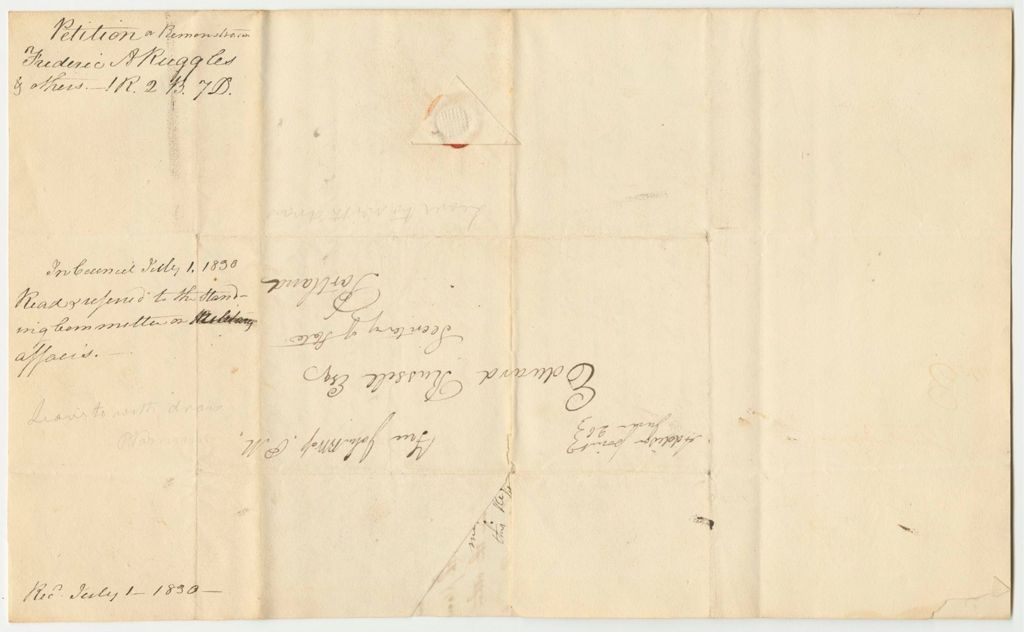 Petition & Remonstrance
Frederic A Ruggles
& others. — 1 R. 2 B. 7 D.
In Council July 1. 1830
Read & referred to the Stand-
ing Committee on Military
affairs. —
Leave to with draw
Rec'd. July 1 — 1830 —
Leave to with draw
Edward Russell Esq
Secretary of State
Portland
Free P. M.
June 26